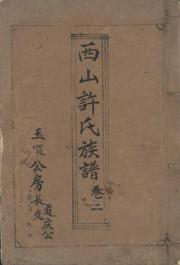 西山許氏族譜
卷二
玉㲀公房長支
道庆公